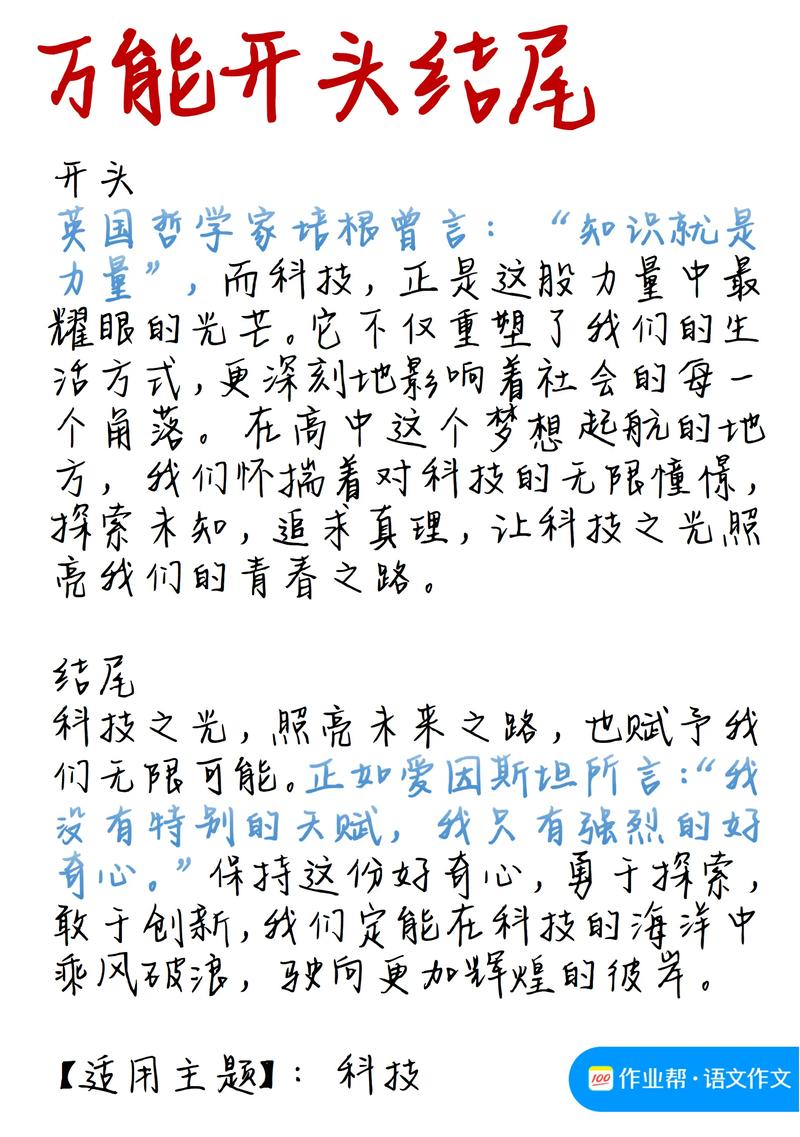 万能开头结尾
开头
英国哲学家培根曾言：“知识就是
力量”，而科技，正是这股力量中最
耀眼的光芒。它不仅重塑了我们的生
活方式，更深刻地影响着社会的每一
个角落。在高中这个梦想起航的地
方，我们怀揣着对科技的无限憧憬，
探索未知，追求真理，让科技之光照
亮我们的青春之路。
结尾
科技之光，照亮未来之路，也赋予我
们无限可能。正如爱因斯坦所言：“我
没有特别的天赋，我只有强烈的好
奇心。”保持这份好奇心，勇于探索，
敢于创新，我们定能在科技的海洋中
乘风破浪，驶向更加辉煌的彼岸。
【适用主题】：科技
100 作业帮·语文作文